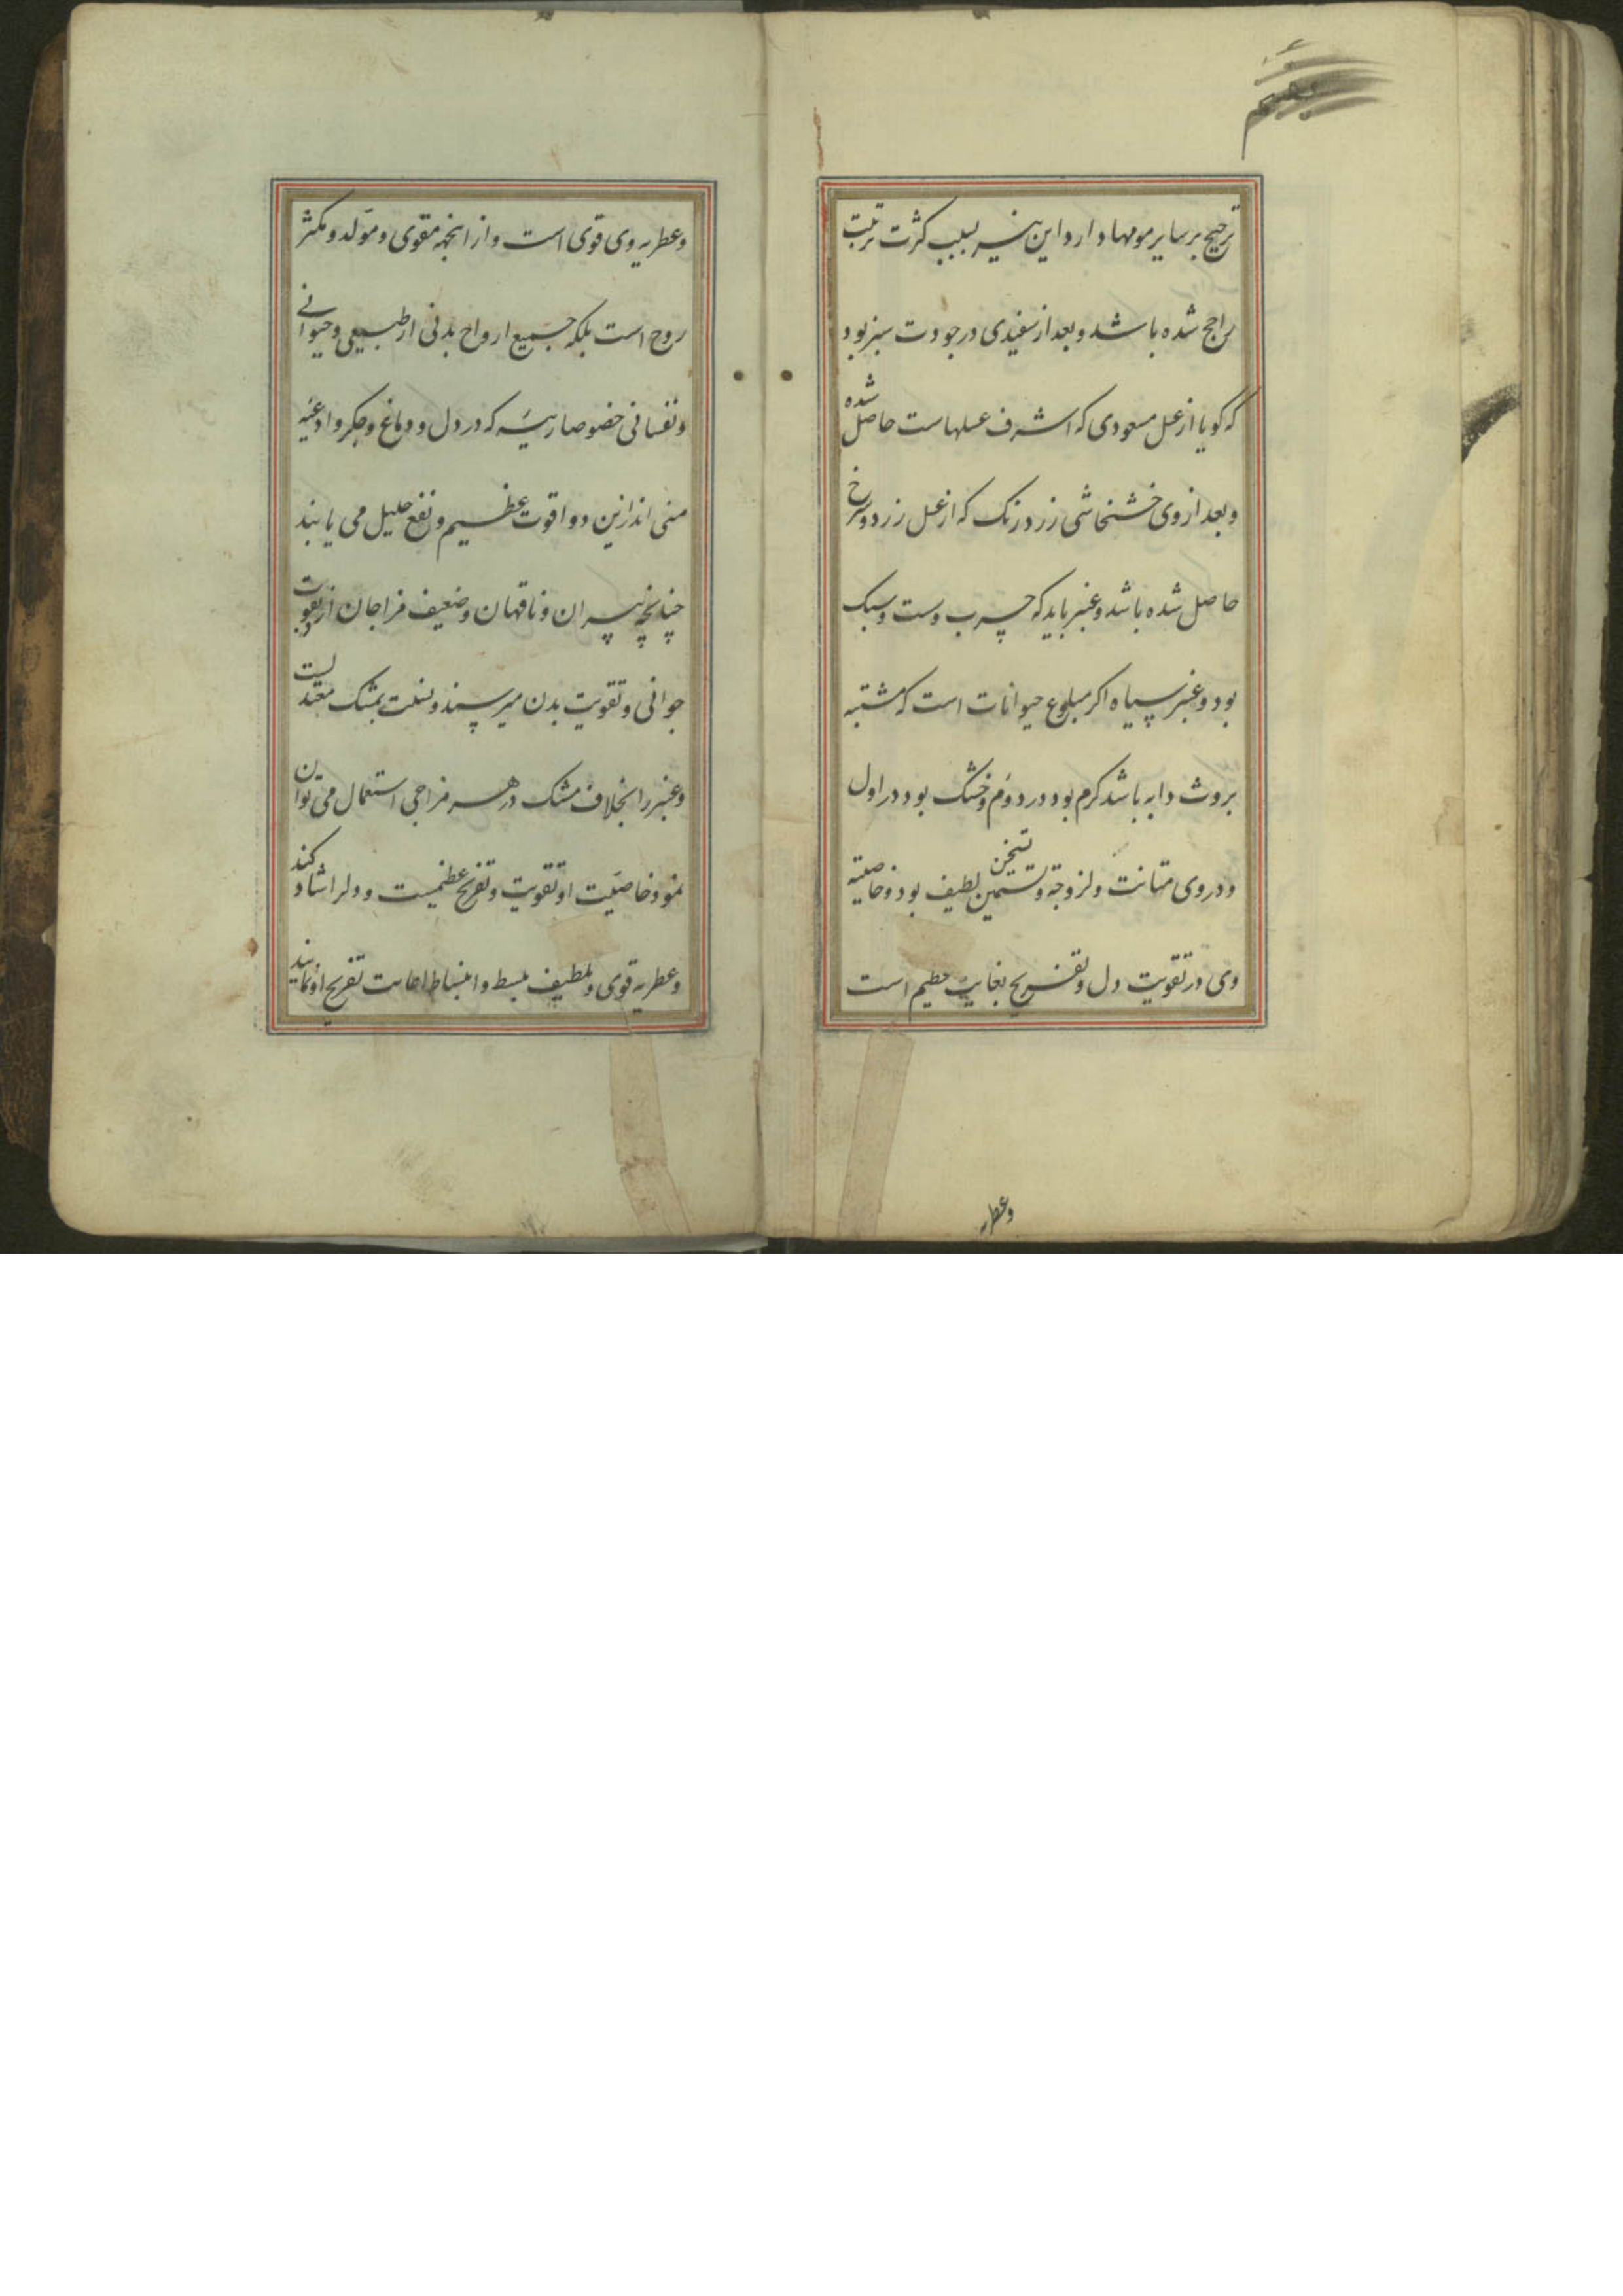 ترجیح بر سایر مومها دارد و این نیز بسبب کثرت تربیت
راجح شده باشد و بعد از سفیدی در جودت سبز بود
که کویا از عسل مسعودی که اشرف عسلهاست حاصل شده
و بعد از وی خشخاشی زرد رنک که از عسل زرد و سرخ
حاصل شده باشد و عنبر باید که چرب و ست و سبک
بود و عنبر سیاه اکر مبلوع حیوانات است که مشتبه
بروث دابه باشد کرم بود در دوم و خشک بود در اول
و در وی متانت و لزوجة و تسمین تسخین لطیف بود و خاصیة
وی در تقویت دل و تفریح بغایت عظیم است
وعطریه
و عطریه وی قوی است و از انجهة مقوی و مولد و مکثر
روح است بلکه جمیع ارواح بدنی از طبیعی و حیوانی
و نفسانی خصوصا رئیسه که در دل و دماغ و جکر و ادعیه
منی اند ازین دوا قوت عظیم و نفع جلیل می یابند
چنانچه پیران و ناقهان و ضعیف مزاجان ازو بقوت
جوانی و تقویت بدن میرسند و نسبت بمشک معتدلست
و عنبر را بخلاف مشک در هر مزاجی استعمال می توان
نمود خاصیت او تقویت و تفریح عظیمست و دلرا شاد کند
و عطریه قوی و لطیف بسط و انبساط اعانت تفریح او نمایند